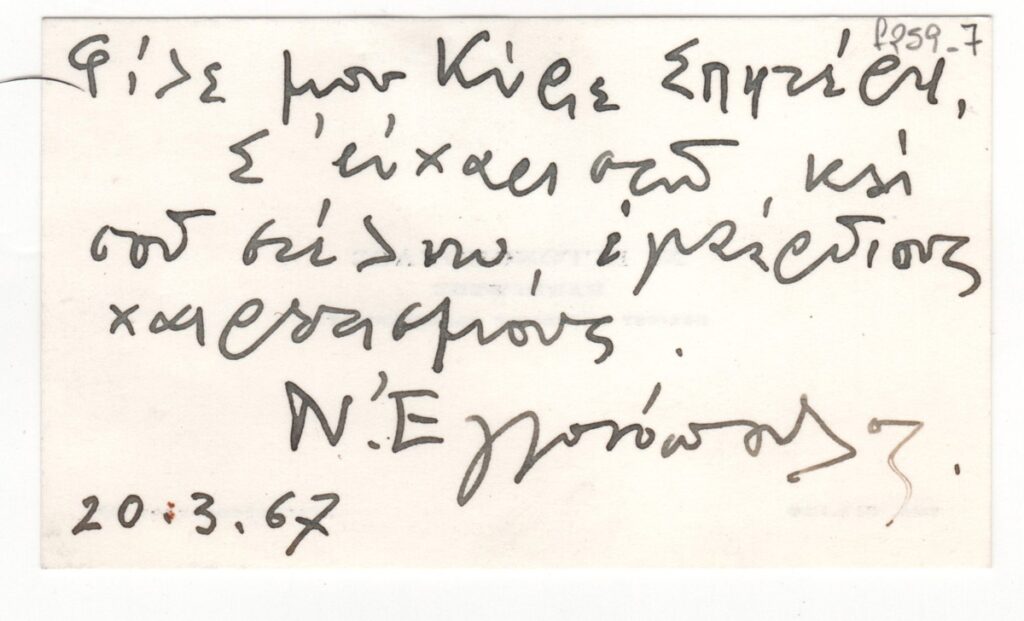 f259_7
Φίλε μου Κύριε Σπητέρη,
Σ' εὐχαριστῶ καὶ
σοῦ στέλνω ἐγκάρδιους
χαιρετισμους.
Ν. Ἐγγονόπουλος.
20.3.67